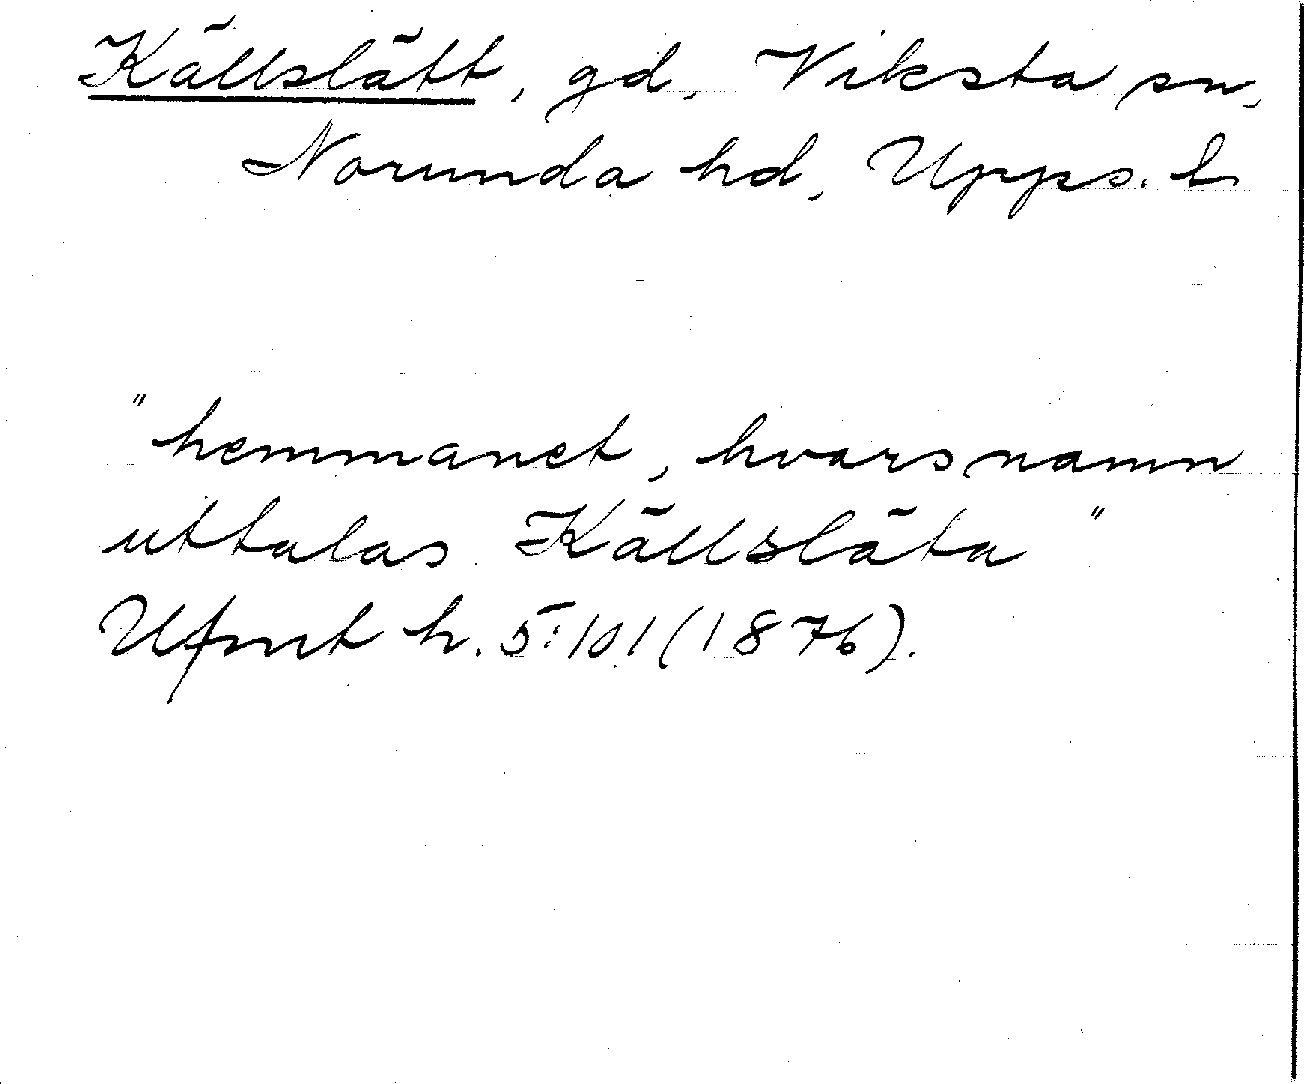 Källslätt, gd, Viksta sn,
Norunda hd, Upps. l
"hemmanet, hvars namn
uttalas Källsläta"
Ufmt h. 5:101 (1876).